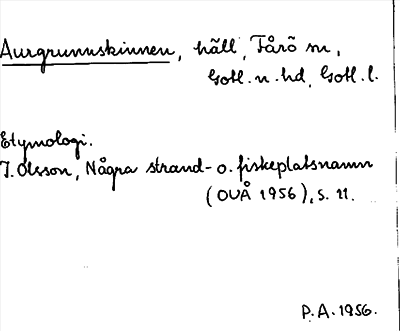 Aurgrunnskinnen, häll, Fårö sn,
Gotl. n. hd, Gotl. l.
Etymologi.
I. Olsson, Några strand- o. fiskeplatsnamn
(OUÅ 1956), s. 11.
P.A. 1956.